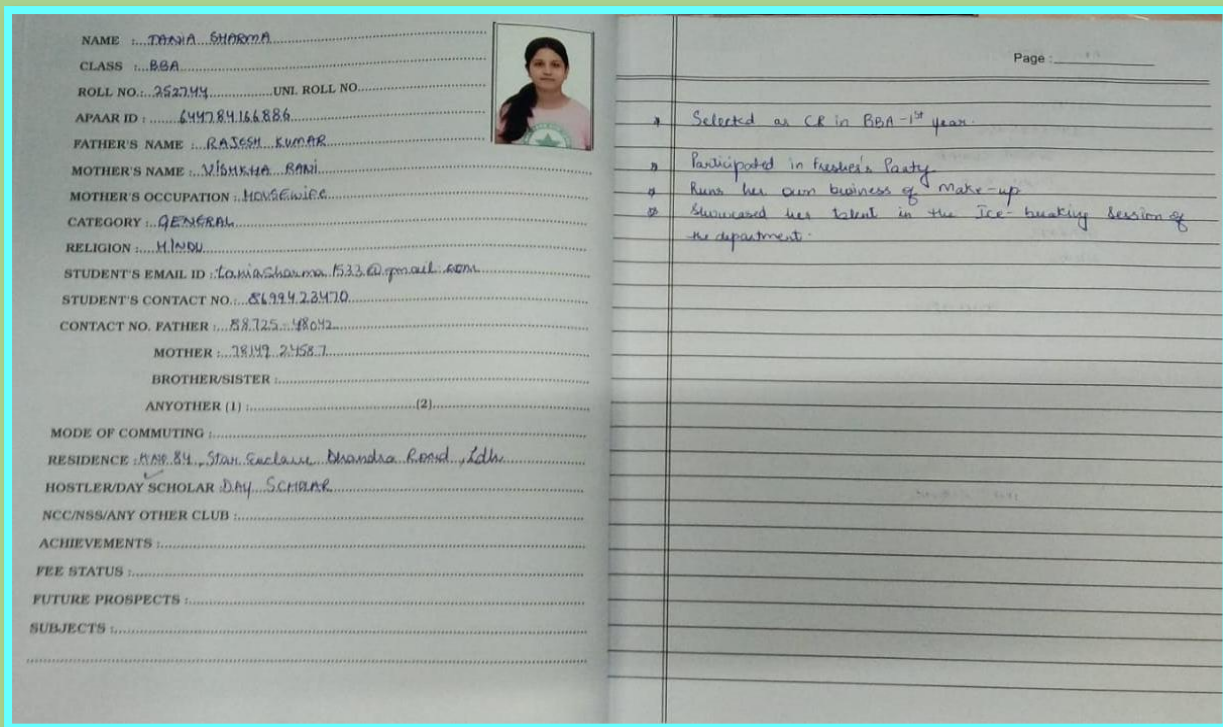 NAME :...TANIA SHARMA
CLASS :...BBA
ROLL NO.:...252744...UNI. ROLL NO.
APAAR ID :......644784166886
FATHER'S NAME :...RAJESH KUMAR
MOTHER'S NAME :...VISHKHA RANI
MOTHER'S OCCUPATION : HOUSEWIFE
CATEGORY :..GENERAL
RELIGION :...HINDU
STUDENT'S EMAIL ID : taniasharma1533@gmail.com
STUDENT'S CONTACT NO.:...8699423470
CONTACT NO. FATHER :...88725-48042
MOTHER :...78149 24587
BROTHER/SISTER :
ANYOTHER (1) :...(2)
MODE OF COMMUTING :
RESIDENCE : H.NO. 84, Star Enclave Dhandra Road, Ldh
HOSTLER/DAY SCHOLAR : DAY SCHOLAR
NCC/NSS/ANY OTHER CLUB :
ACHIEVEMENTS :
FEE STATUS :
FUTURE PROSPECTS :
SUBJECTS :
Page :
Selected as CR in BBA-1st year.
Participated in Fresher's Party
Runs her own business of Make-up
Showcased her talent in the Ice-breaking Session of
the department.